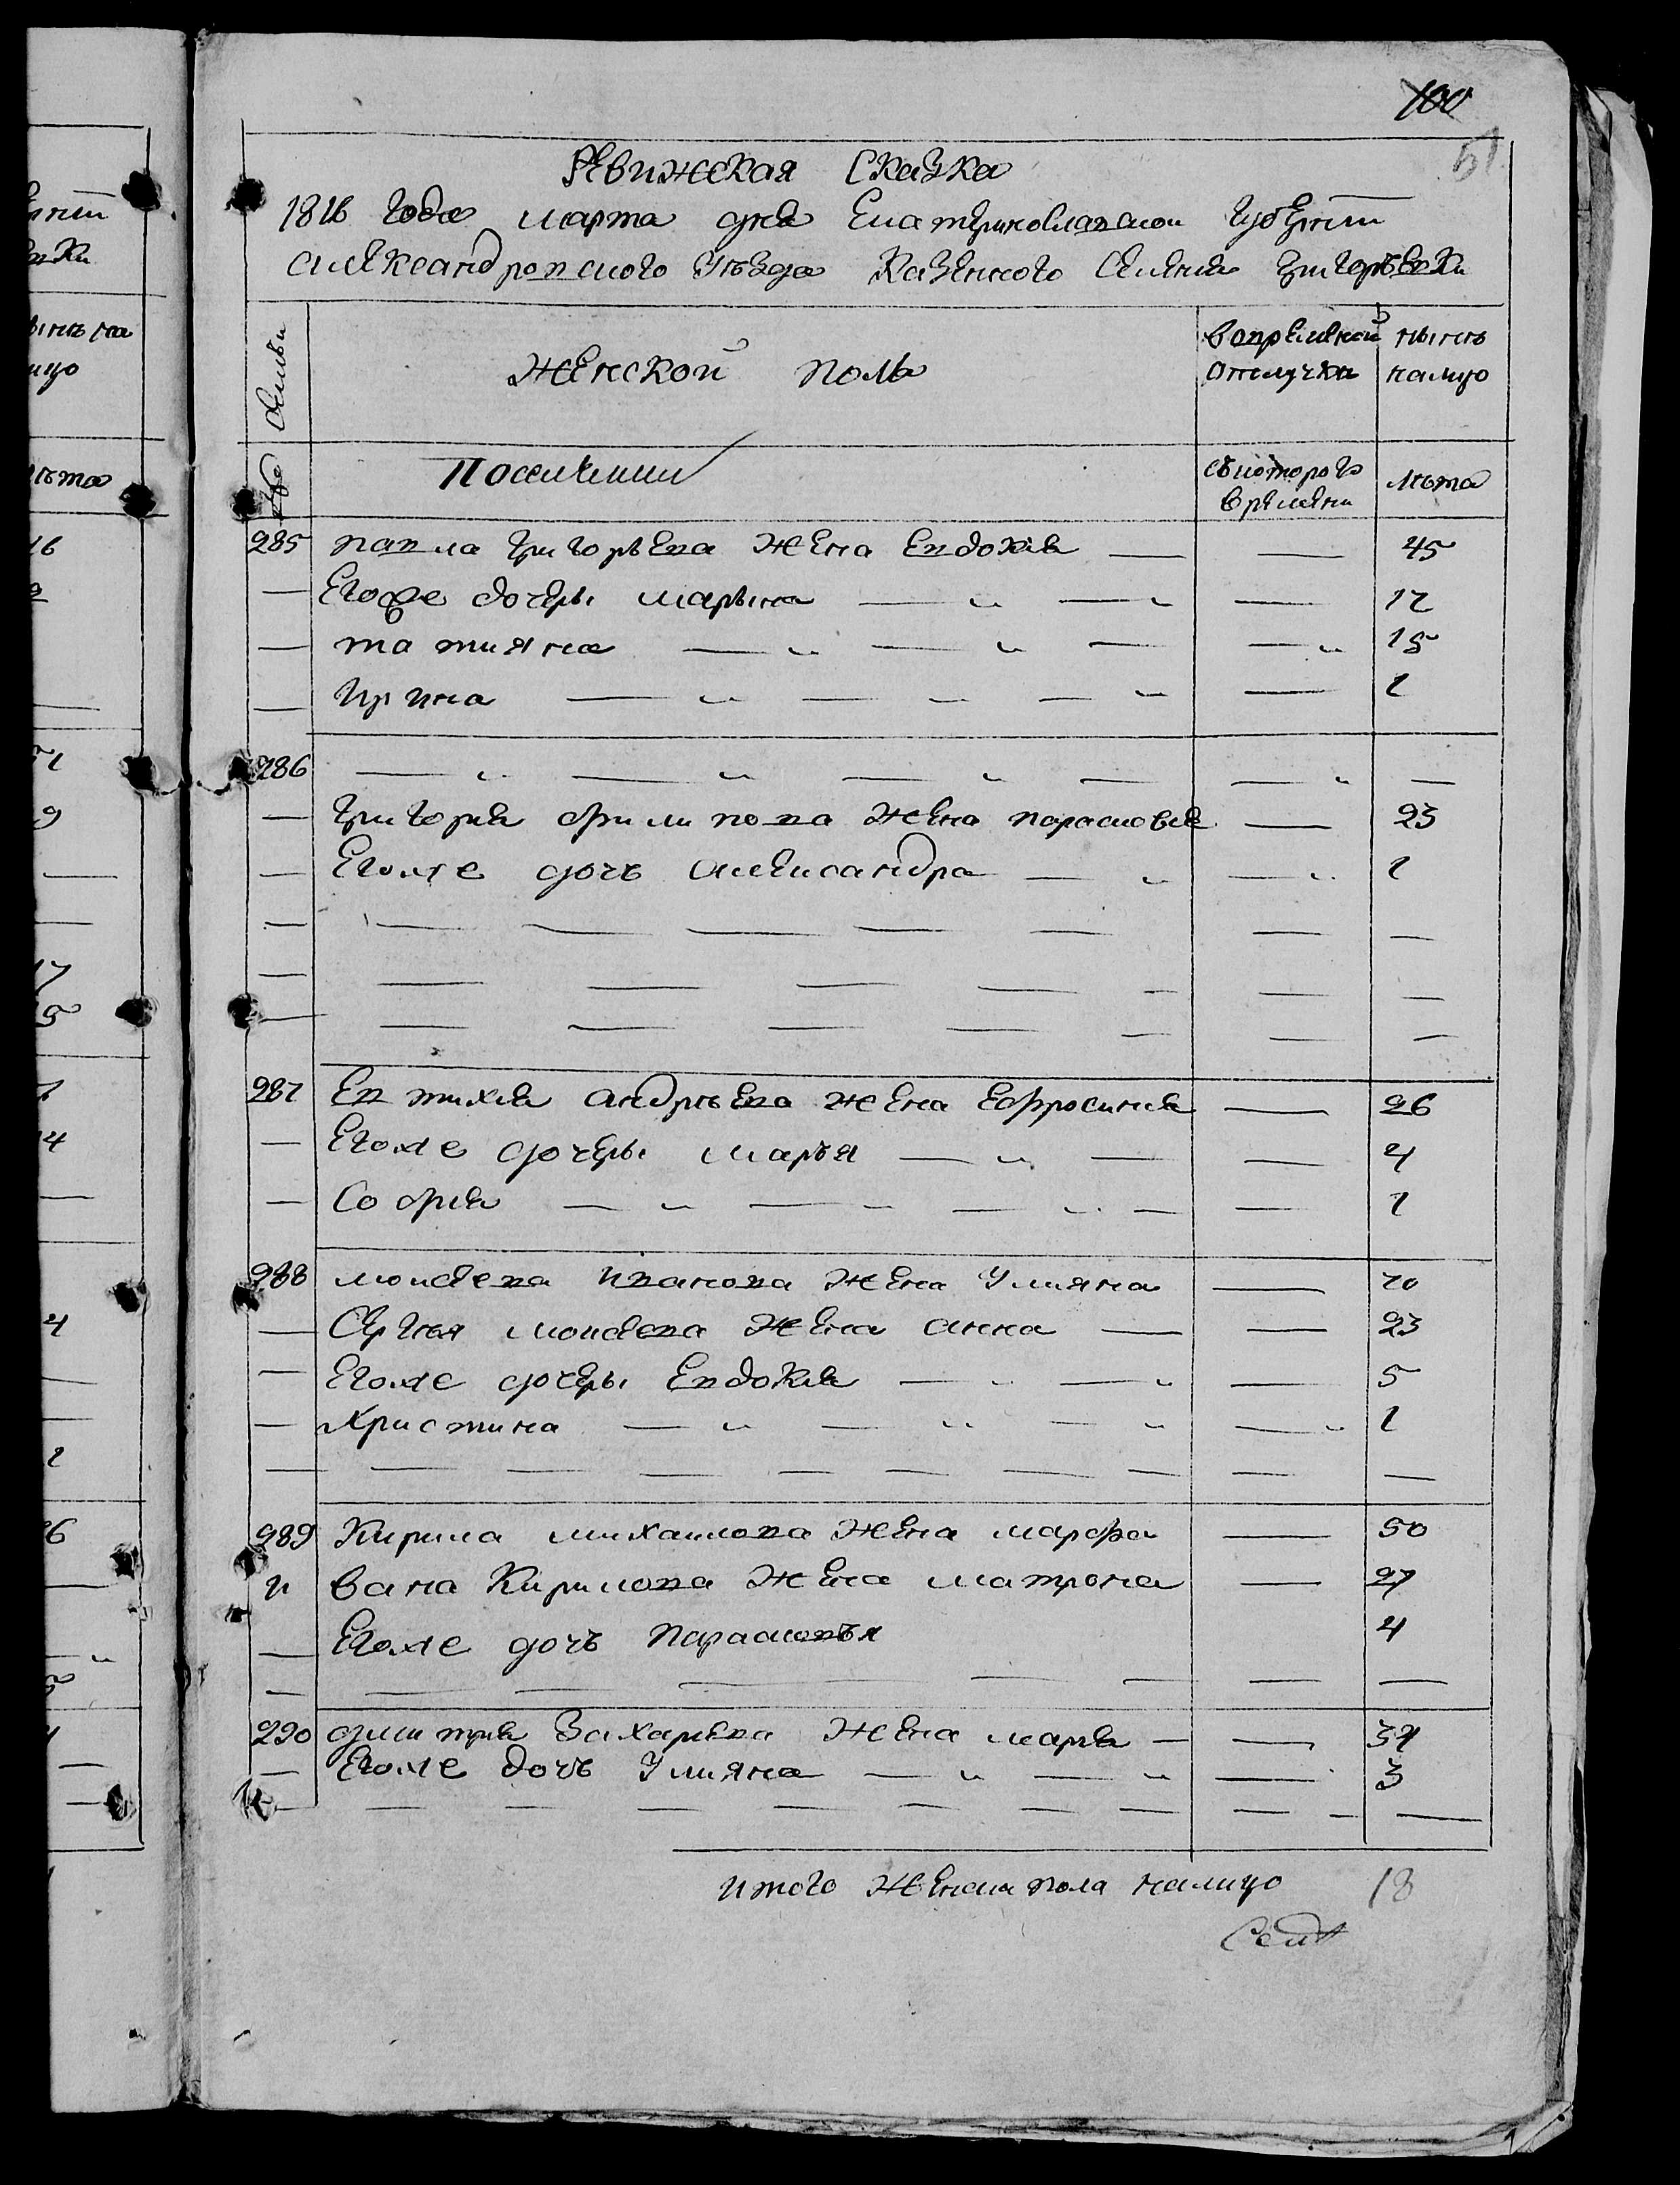 100
51
Ревижская Сказка
1816 Года марта дня Екатеринославской Губернии
Александровского Уезда Казенного Селения Григорьевки
Семьи
Женской Полъ
вовременной отлучки
нынѣ налицо
Поселении
съкоторого времени
лѣта
285 павла Григорьева жена Евдокия — — 45
— Егоже дочеры марына — " — " — 17
— татияна — " — " — — " 15
— Ирина — " — " — " — 1
286 — " — " — " — — " —
— Григория Филипова жена парасковия — 23
— Егоже дочь александра — " — " 1
287 Евтихия андрѣева жена Ефросиния — 26
— Егоже дочеры марья — " — — 4
— София — " — " — " — — 1
288 моисеева Иванова жена Улияна — 70
— Сергея моисеева жена анна — — 23
— Егоже дочеры Евдокия — " — " — 5
— Христина — " — " — " — " 1
289 Кирила михаилова жена марфа — 50
и вана Кирилова жена матрона — 27
— Егоже дочъ Парасковъя 4
290 дмитрия Захариева жена мария — — 34
— Егоже дочь Улияна — " — " — 3
итого женска пола налицо 18
16
9
17
5
4
4
1